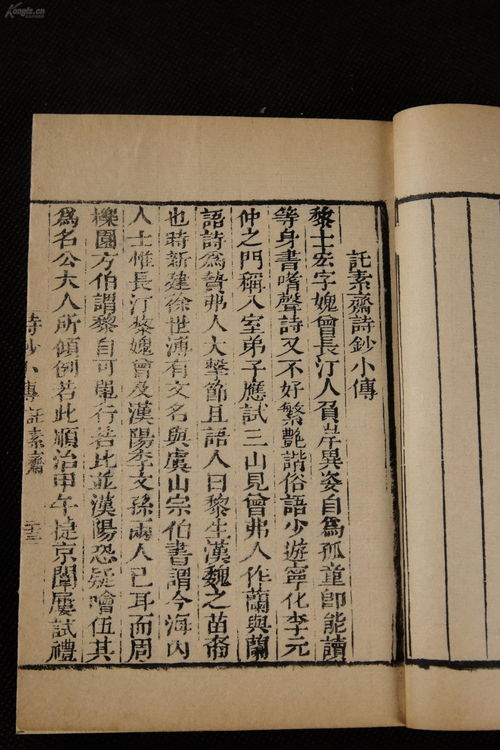 託素齋詩鈔小傳
黎士宏字媿曾長汀人負岸異姿自為孤童即能讀
等身書嗜聲詩又不好繁艷諧俗語少遊寧化李元
仲之門稱入室弟子應試三山見曾弗人作蘭與蘭
語詩為贄弗人大擊節且語人曰黎生漢魏之苗裔
也時新建徐世溥有文名與虞山宗伯書謂今海內
人士惟長汀黎媿曾及漢陽李文孫兩人已耳而周
櫟園方伯謂黎自可單行若比並漢陽恐疑噲伍其
為名公大人所傾倒若此順治甲午捷京闈屢試禮
詩鈔小傳 託素齋 三三
Kongfz.cn